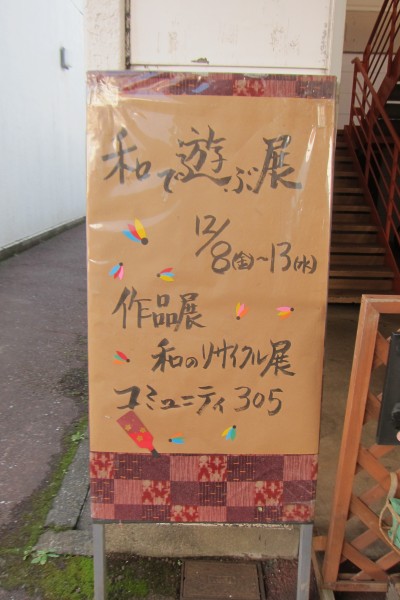 和で遊ぶ展
12/8(金)～13(水)
作品展
和のリサイクル展
コミュニティ305